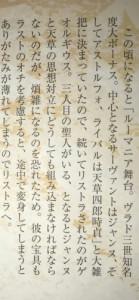 この頃になるとルーマニア舞台。ヴラド三世知名
度大ボーナス。中心となるサーヴァントはジャンヌ、そ
してアストルフォ。ライバルは天草四郎時貞！と大雑
把に決まっていたので、続いてリストラされたのがゲ
オルギウス。三人目の聖人がいる、となるとジャンヌ
と天草の思想対立にどうしても組み込まねばならな
いのだが、煩雑になるのを恐れたため。彼の宝具も
ラストのオチを考慮すると、途中で変身してしまうと
ありがたみが薄れてしまうのでリストラへ。